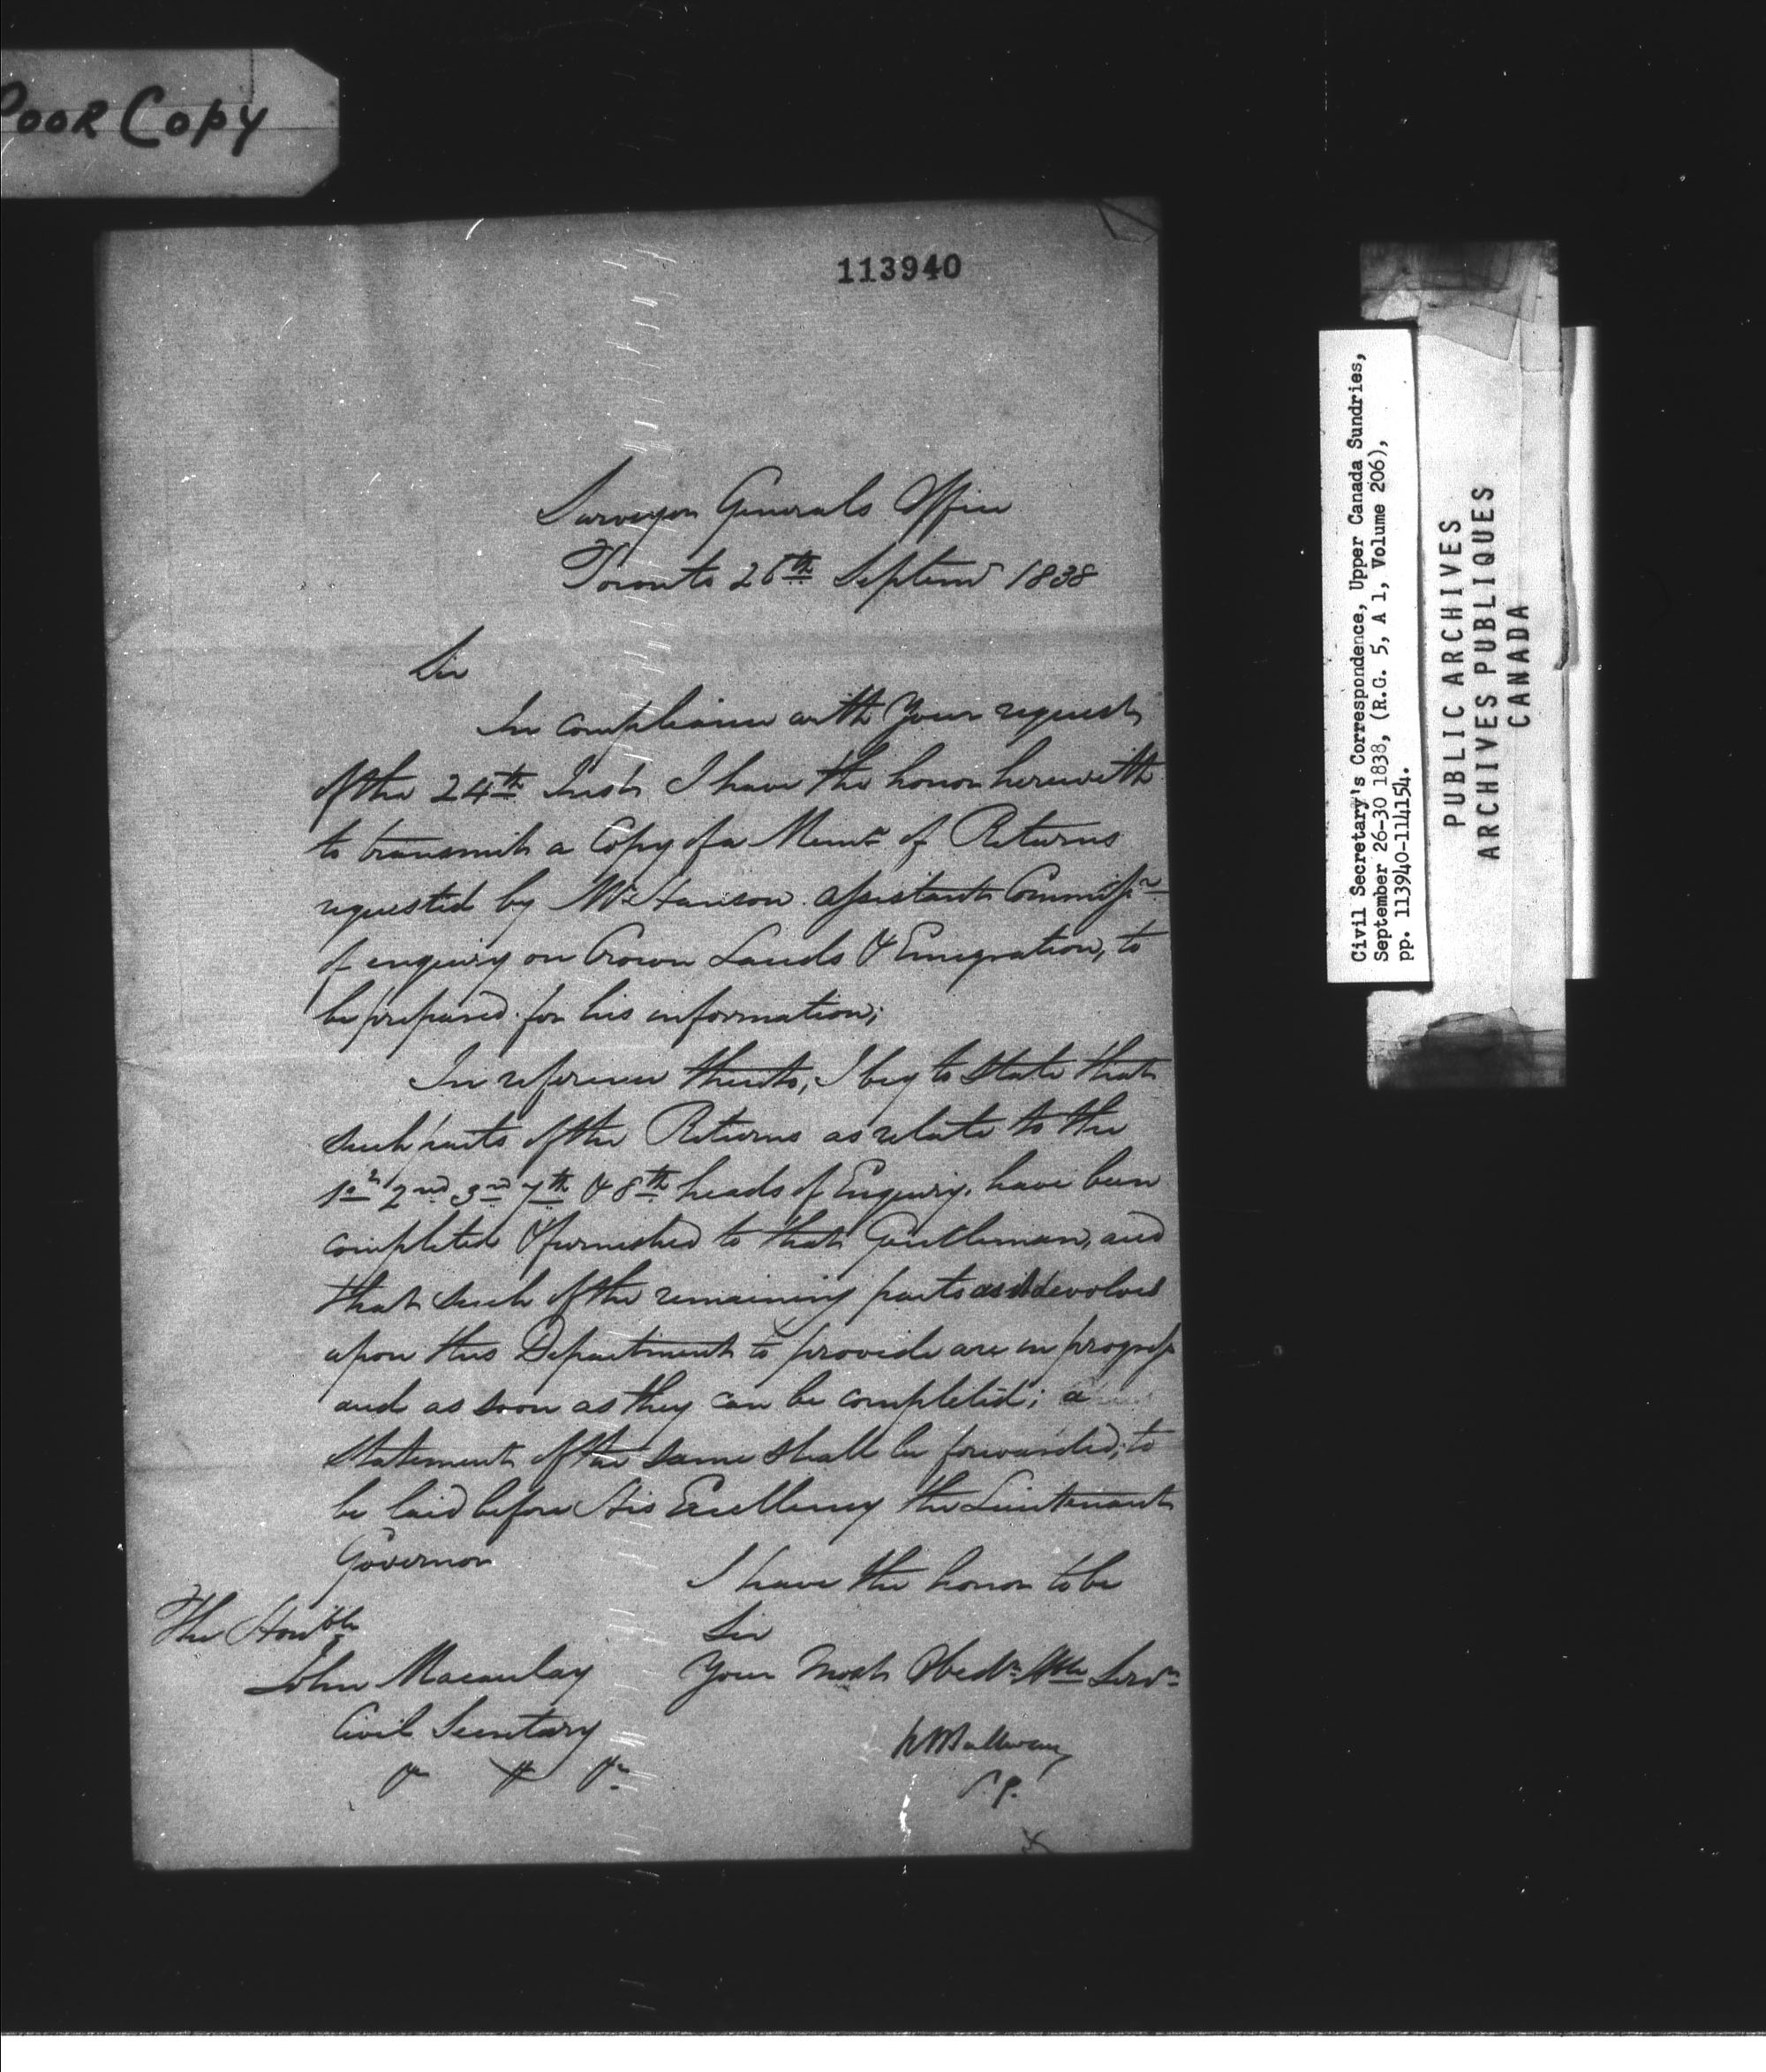 Poor Copy
113940
Surveyor Generals Office
Toronto 26th Septemr 1838
Sir
In compliance with Your request
of the 24th Inst. I have the honor herewith
to transmit a Copy of a Memo of Returns
requested by Mr Hanson assistant Commissr
of enquiry on Crown Lands & Emigration, to
be prepared for his information;
In reference thereto, I beg to state that
such parts of the Returns as relate to the
1st 2nd 3rd 7th & 8th heads of Enquiry, have been
completed & furnished to that Gentleman, and
that such of the remaining parts as it devolves
upon this Department to provide are in progress
and as soon as they can be completed; a
statement of the same shall be forwarded, to
be laid before His Excellency the Lieutenant
Governor
I have the honor to be
Sir
Your Most Obedt Hble Servt
The Honble
John Macaulay
Civil Secretary
& & &c
Civil Secretary's Correspondence, Upper Canada Sundries,
September 26-30 1838, (R.G. 5, A 1, Volume 206),
pp. 113940-114154.
PUBLIC ARCHIVES
ARCHIVES PUBLIQUES
CANADA